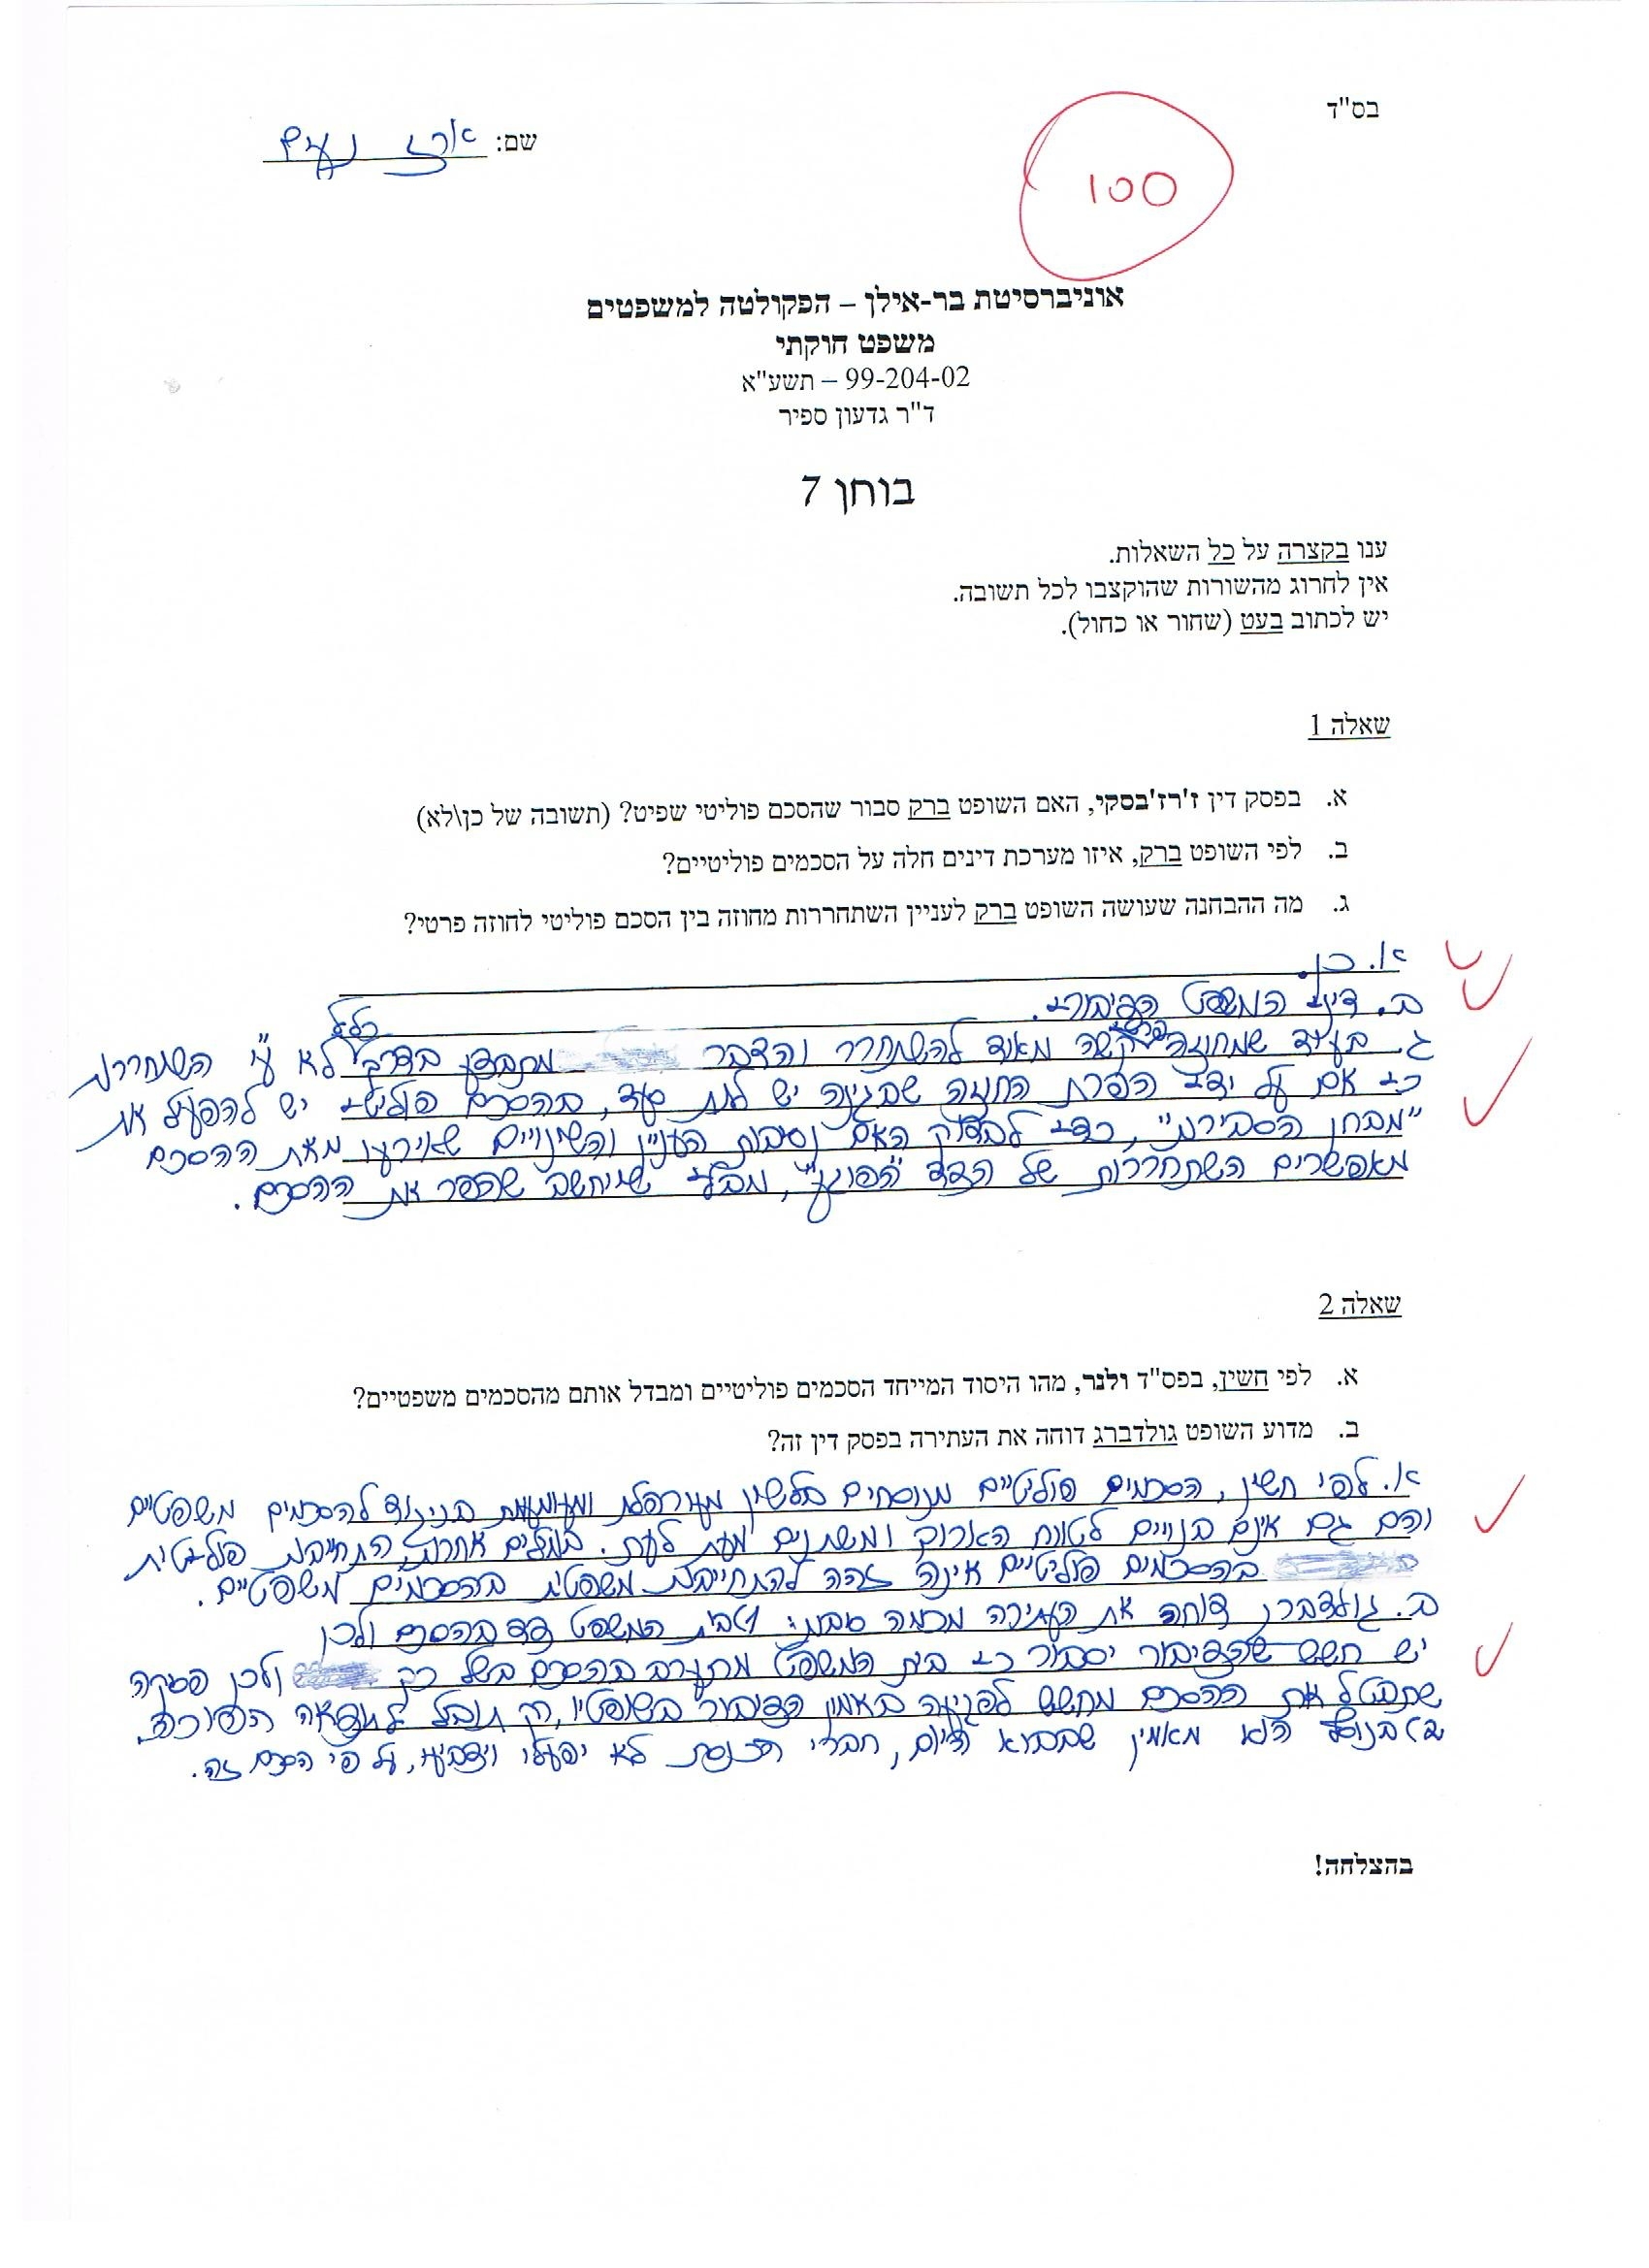 בס"ד
שם: ארז נעים
100
אוניברסיטת בר-אילן – הפקולטה למשפטים
משפט חוקתי
99-204-02 – תשע"א
ד"ר גדעון ספיר
בוחן 7
ענו בקצרה על כל השאלות.
אין לחרוג מהשורות שהוקצבו לכל תשובה.
יש לכתוב בעט (שחור או כחול).
שאלה 1
א. בפסק דין ז'רז'בסקי, האם השופט ברק סבור שהסכם פוליטי שפיט? (תשובה של כן\לא)
ב. לפי השופט ברק, איזו מערכת דינים חלה על הסכמים פוליטיים?
ג. מה ההבחנה שעושה השופט ברק לעניין השתחררות מחוזה בין הסכם פוליטי לחוזה פרטי?
א. כן.
ב. דיני המשפט הציבורי.
ג. בעוד שמחוזה פרטי קשה מאוד להשתחרר והדבר מתבצע בדרך כלל לא ע"י השתחררות
כי אם על ידי הפרת החוזה שבגינה יש לתת סעד, בהסכם פוליטי יש להפעיל את
"מבחן הסבירות", כדי לבדוק האם נסיבות העניין והשינויים שאירעו מאת ההסכם
מאפשרים השתחררות של הצד "הפוגע", מבלי שייחשב שהפר את ההסכם.
שאלה 2
א. לפי חשין, בפס"ד ולנר, מהו היסוד המייחד הסכמים פוליטיים ומבדל אותם מהסכמים משפטיים?
ב. מדוע השופט גולדברג דוחה את העתירה בפסק דין זה?
א. לפי חשין, הסכמים פוליטיים מנוסחים בלשון מעורפלת ומעומעמת בניגוד להסכמים משפטיים
והם גם אינם בנויים לטווח הארוך ומשתנים מעת לעת. במילים אחרות, התחייבות פוליטית
בהסכמים פוליטיים אינה זהה להתחייבות משפטית בהסכמים משפטיים.
ב. גולדברג דוחה את העתירה מכמה סיבות: בית המשפט צד בהסכם ולכן
יש חשש שהציבור יסבור כי בית המשפט מתערב בהסכם בשל כך ולכן פסיקה
שתבטל את ההסכם מחשש לפגיעה באמון הציבור בשופטיו, רק תוביל לתוצאה הפוכה.
2) בנוסף הוא מאמין שבבוא היום, חברי הכנסת לא יפעלו ויצביעו, על פי הסכם זה.
בהצלחה!